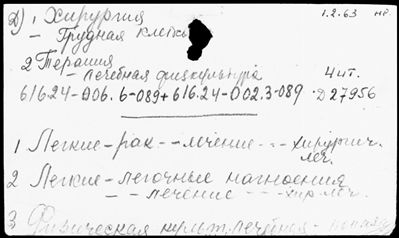 Д) 1 Хирургия 1.2.63 нр.
- Грудная клетка
2 Терапия
- лечебная физкультура 4 чт.
616.24-006.6-089+616.24-002.3-089 Д27956
1 Легкие - рак - - лечение - - - хирургич.
леч.
2 Легкие - легочные нагноения
- - лечение - - - хир. леч.
3 Физическая культ. лечебная -